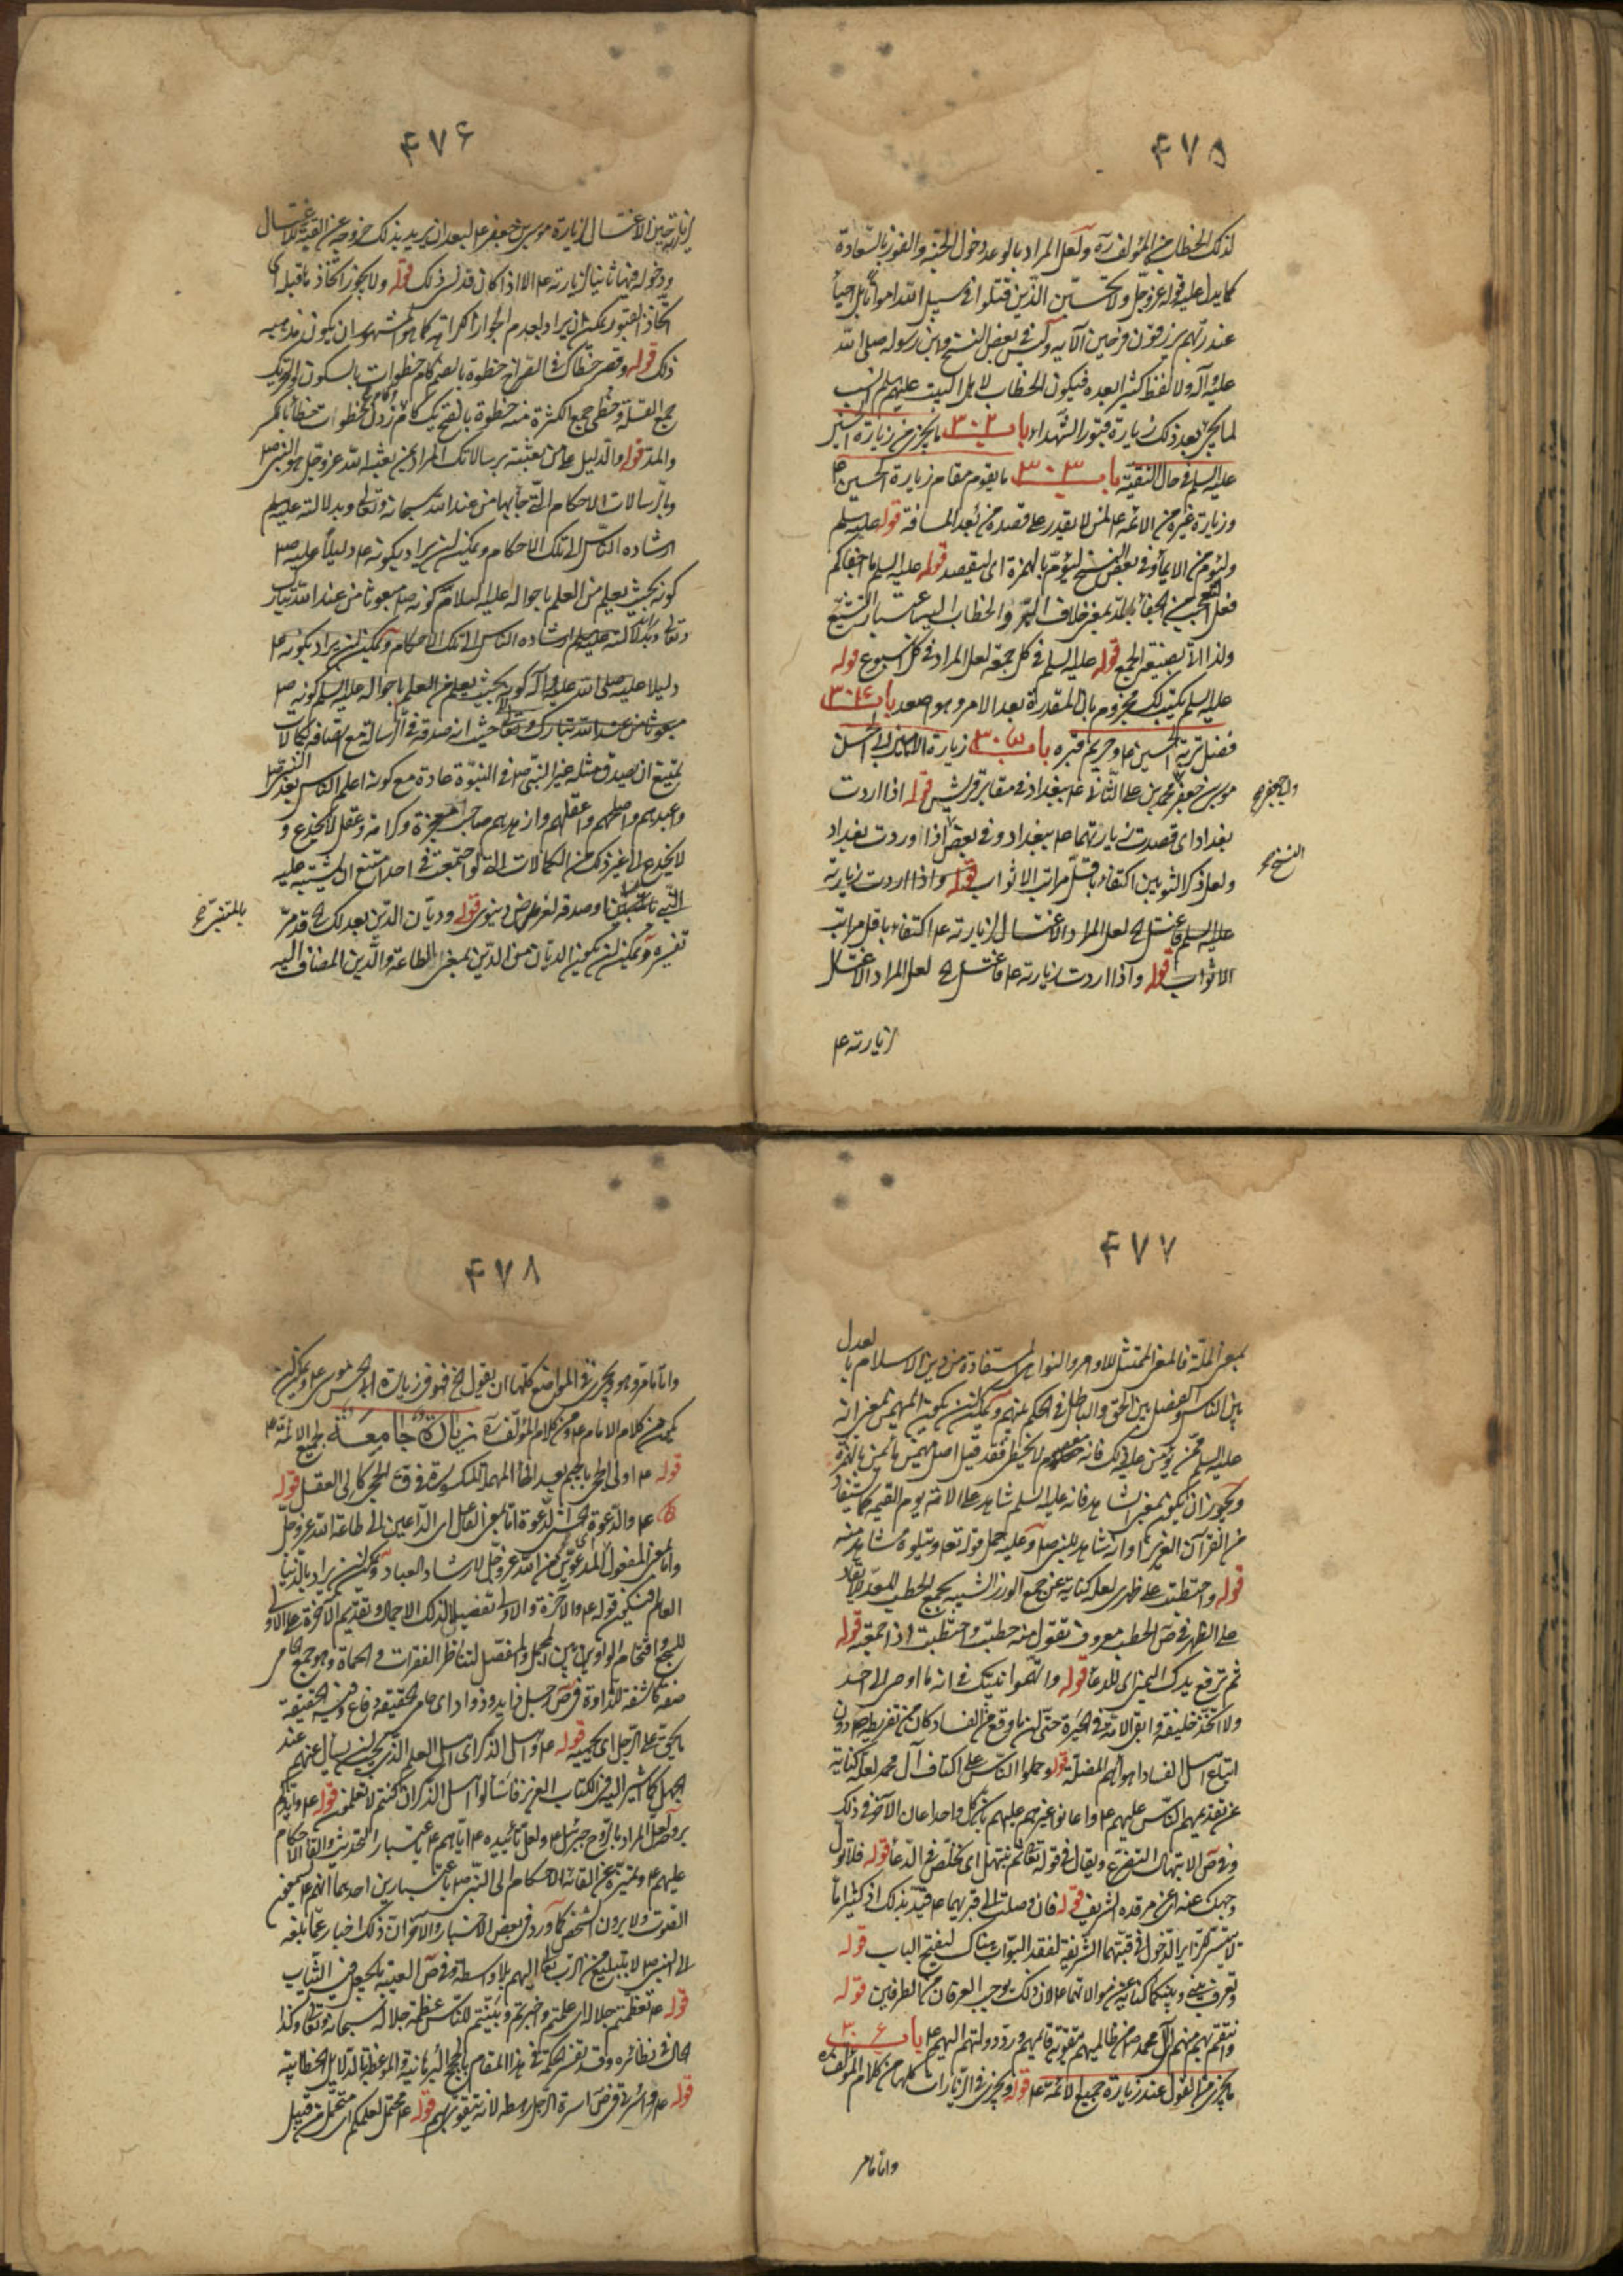 ۴۷۵
لذلك الخطاب من المؤلف ره ولعل المراد بالوعد دخول الجنة والفوز بالسعادة
كما يدل عليه قوله عز وجل ولا تحسبن الذين قتلوا في سبيل الله امواتا بل احياء
عند ربهم يرزقون فرحين الآية وليس في بعض النسخ وابن رسوله صلى الله
عليه وآله ولا لفظ كثيرا بعده فيكون الخطاب لاهل البيت عليهم السلم انسب
لما يجئ بعد ذلك زيارة قبور الشهداء باب ۳۰۲ ما يجزي من زيارة الحسين
عليه السلم في حال التقية باب ۳۰۳ ما يقوم مقام زيارة الحسين ع
وزيارة غيره من الائمة ع لمن لا يقدر على قصده من بعد المسافة قوله عليه السلم
وليؤم من الايماء وفي بعض النسخ ليؤم بالهمزة اي ليقصد قوله عليه السلم ما اجفاكم
فعل التعجب من الجفاء بالمد بمعنى خلاف البر والخطاب اليه باعتبار التشيع
ولذا اتى بصيغة الجمع قوله عليه السلم في كل جمعة لعل المراد في كل اسبوع قوله
عليه السلم يكتب لك مجزوم بان المقدرة بعد الامر وهو اصعد باب ۳۰۴
فضل تربة الحسين ع وحريم قبره باب ۳۰۵ زيارة الامامين ابي الحسن
موسى بن جعفر محمد بن علي الثاني ع ببغداد في مقابر قريش قوله اذا اردت
وابي جعفر صح
بغداد اي قصدت زيارتهما ع ببغداد وفي بعض اذا وردت بغداد
النسخ صح
ولعل ذكر الثوبين اكتفاء باقل مراتب الاثواب قوله واذا اردت زيارته
عليه السلم فاغتسل الخ لعل المراد الاغتسال لزيارته ع اكتفاء باقل مراتب
الاثواب قوله واذا اردت زيارته ع فاغتسل الخ لعل المراد الاغتسال
لزيارته ع
۴۷۶
لزيارته حين الاغتسال لزيارة موسى بن جعفر ع لبعد ان يريد بذلك خروجه عن القبة للاغتسال
ودخوله فيها ثانيا لزيارته ع الا اذا كان قد نسي ذلك قوله ولا يجوز اتخاذ قبلة اي
اتخاذ القبور يمكن ان يراد بعدم الجواز الكراهة كما هو المشهور ان يكون مذهبه
ذلك قوله وقصر خطاك في الصراح خطوة بالضم كام خطوات بالسكون والتحريك
جمع القلة وخطى جمع الكثرة منه خطوة بالفتح يك كام زدن خطوات خطاء بالكسر
والمد قوله والدليل على من بعثته برسالاتك المراد بمن بعثه الله عز وجل هو النبي ص
وبالرسالات الاحكام التي جاء بها من عند الله سبحانه وتعالى وبدلالته عليه السلم
ارشاده الناس الى تلك الاحكام ويمكن ان يراد بكونه ع دليلا عليه ص
كونه بحيث يعلم من العلم باحواله عليه السلام كونه ص مبعوثا من عند الله تبارك
وتعالى وبدلالته عليه السلم ارشاده الناس الى تلك الاحكام ويمكن ان يراد بكونه ع
دليلا عليه صلى الله عليه وآله كونه بحيث يعلم من العلم باحواله عليه السلم كونه ص
مبعوثا من عند الله تبارك وتعالى حيث انه صدقه في الرسالة مع اتصافه بكمالات
يمتنع ان يصدق مثله غير النبي ص في النبوة عادة مع كونه اعلم الناس بعد النبي ص
واعبدهم واصلحهم واعقلهم وازهدهم صاحب معجزة وكرامة وعقل لا يخدع و
لا يخدع الى غير ذلك من الكمالات التي لو اجتمعت في احد امتنع ان يشتبه عليه
النبي وصدقه لغرض دنيوي قوله وديان الدين بعدلك الخ قد مر
بالمتنبي صح
تفسيره ويمكن ان يكون الديان من الدين بمعنى الطاعة والدين المضاف اليه
۴۷۷
بمعنى الملة فالمعنى الممتثل للاوامر والنواهي المستفادة من دين الاسلام بالعدل
بين الناس والفصل بين الحق والباطل في الحكم بينهم ويمكن ان يكون المهيمن بمعنى انه
عليه السلم ممن يؤمن على ذلك فانه معصوم لا يخطي فقد قيل اصل مهيمن مأيمن بالهمزة
ويجوز ان يكون بمعنى الشاهد فانه عليه السلم شاهد على الامة يوم القيمة كما يستفاد
من القرآن العزيز او انه شاهد للنبي ص وعليه حمل قوله تعالى ويتلوه شاهد منه
قوله واحتطبت على ظهري لعله كناية عن جمع الوزر الشبيه بجمع الحطب للعدو لايقاد
على الظهر في ص الحطب معروف تقول منه حطبت واحتطبت اذا جمعته قوله
ثم ترفع يدك اليمنى اي للدعاء قوله واتهموا نبيك في انه ما اوصى الى احد
ولا اتخذ خليفة وابقى الامة في الحيرة حتى ان ما وقع من الفساد كان من تفريطه ص دون
اتباع اهل الفساد اهوائهم المضلة قوله وحملوا الناس على اكتاف آل محمد لعله كناية
عن تقديمهم الناس عليهم ع واعانوا غيرهم عليهم بان كل واحد اعان الآخر في ذلك
وفي ص الابتهال التضرع ويقال في قوله تعالى ثم نبتهل اي نخلص في الدعاء قوله فلا تول
وجهك عنه اي عن مرقده الشريف قوله فان وصلت الى قبريهما ع قيد بذلك اذ كثيرا ما
لا يتيسر للزائر الدخول في قبتهما الشريفة لفقد البواب هناك ليفتح الباب قوله
وتعرف بيني وبينكما كناية عن موالاتهما ع لان ذلك يوجب العرفان من الطرفين قوله
وانتقم بهم منهم اي آل محمد ص من ظالميهم بتقوية قائمهم ورد دولتهم اليهم ع باب ۳۰۶
ما يجزي من القول عند زيارة جميع الائمة ع قوله ويجزي في الزيارات كلها من كلام المؤلف ره
واما ما مر
۴۷۸
واما ما مر وهو ويجزي في المواضع كلها ان يقول الخ فهو في زيارة ابي الحسن موسى ع ويمكن ان
يكون من كلام الامام ع ومن كلام المؤلف ره زيارة جامعة لجميع الائمة ع
قوله ع اولي الحجى بالجيم بعد الحاء المهملة المكسورة في ق الحجى كالى العقل قوله
ع والدعوة الحسنى الدعوة اما بمعنى الفاعل اي الداعين الى طاعة الله عز وجل
واما بمعنى المفعول اي المدعوين من الله عز وجل لارشاد العباد ويمكن ان يراد بالدنيا
العالم فيكون قوله ع والآخرة والاولى تفصيلا لذلك الاجمال وتقديم الآخرة على الاولى
للسجع واقتحام الواو بين المجمل والمفصل لتناظر الفقرات والحماة وهو جمع حامر
صفة كاشفة للذادة في ص رجل ذايد وذواد اي حامي الحقيقة دفاع وفيه الحقيقة
ما يحق على الرجل ان يحميه قوله ع واهل الذكر اي اهل العلم الذي يجب ان يسال عنهم عند
الجهل كما اشير اليه في الكتاب العزيز فاسألوا اهل الذكر ان كنتم لا تعلمون قوله ع وايدكم
بروحه لعل المراد بالروح جبرئيل ع ولعل تأييده ع اياهم ع باعتبار التحديث والقاء الاحكام
عليهم ع وتميزه عن القائه الاحكام الى النبي ص باعتبارين احدهما انهم ع يسمعون
الصوت ولا يرون الشخص كما ورد في بعض الاخبار والآخر ان ذلك اخبار عما بلغه
الى النبي ص لا تبليغ من الرب تعالى اليهم بلا واسطة وفي ص العيبة ما يجعل فيه الثياب
قوله ع فعظمتم جلاله اي علمتم واخبرتم وبينتم للناس عظمة جلاله سبحانه وتعالى وكذا
الحال في نظائره وقد تفسر الحكمة في هذا المقام بالحجج البرهانية والموعظة بالدلايل الخطابية
قوله ع واسرتي في ص اسرة الرجل رهطه لانه يتقوى بهم قوله ع محتمل لعلمكم اي متحمل من قبيل